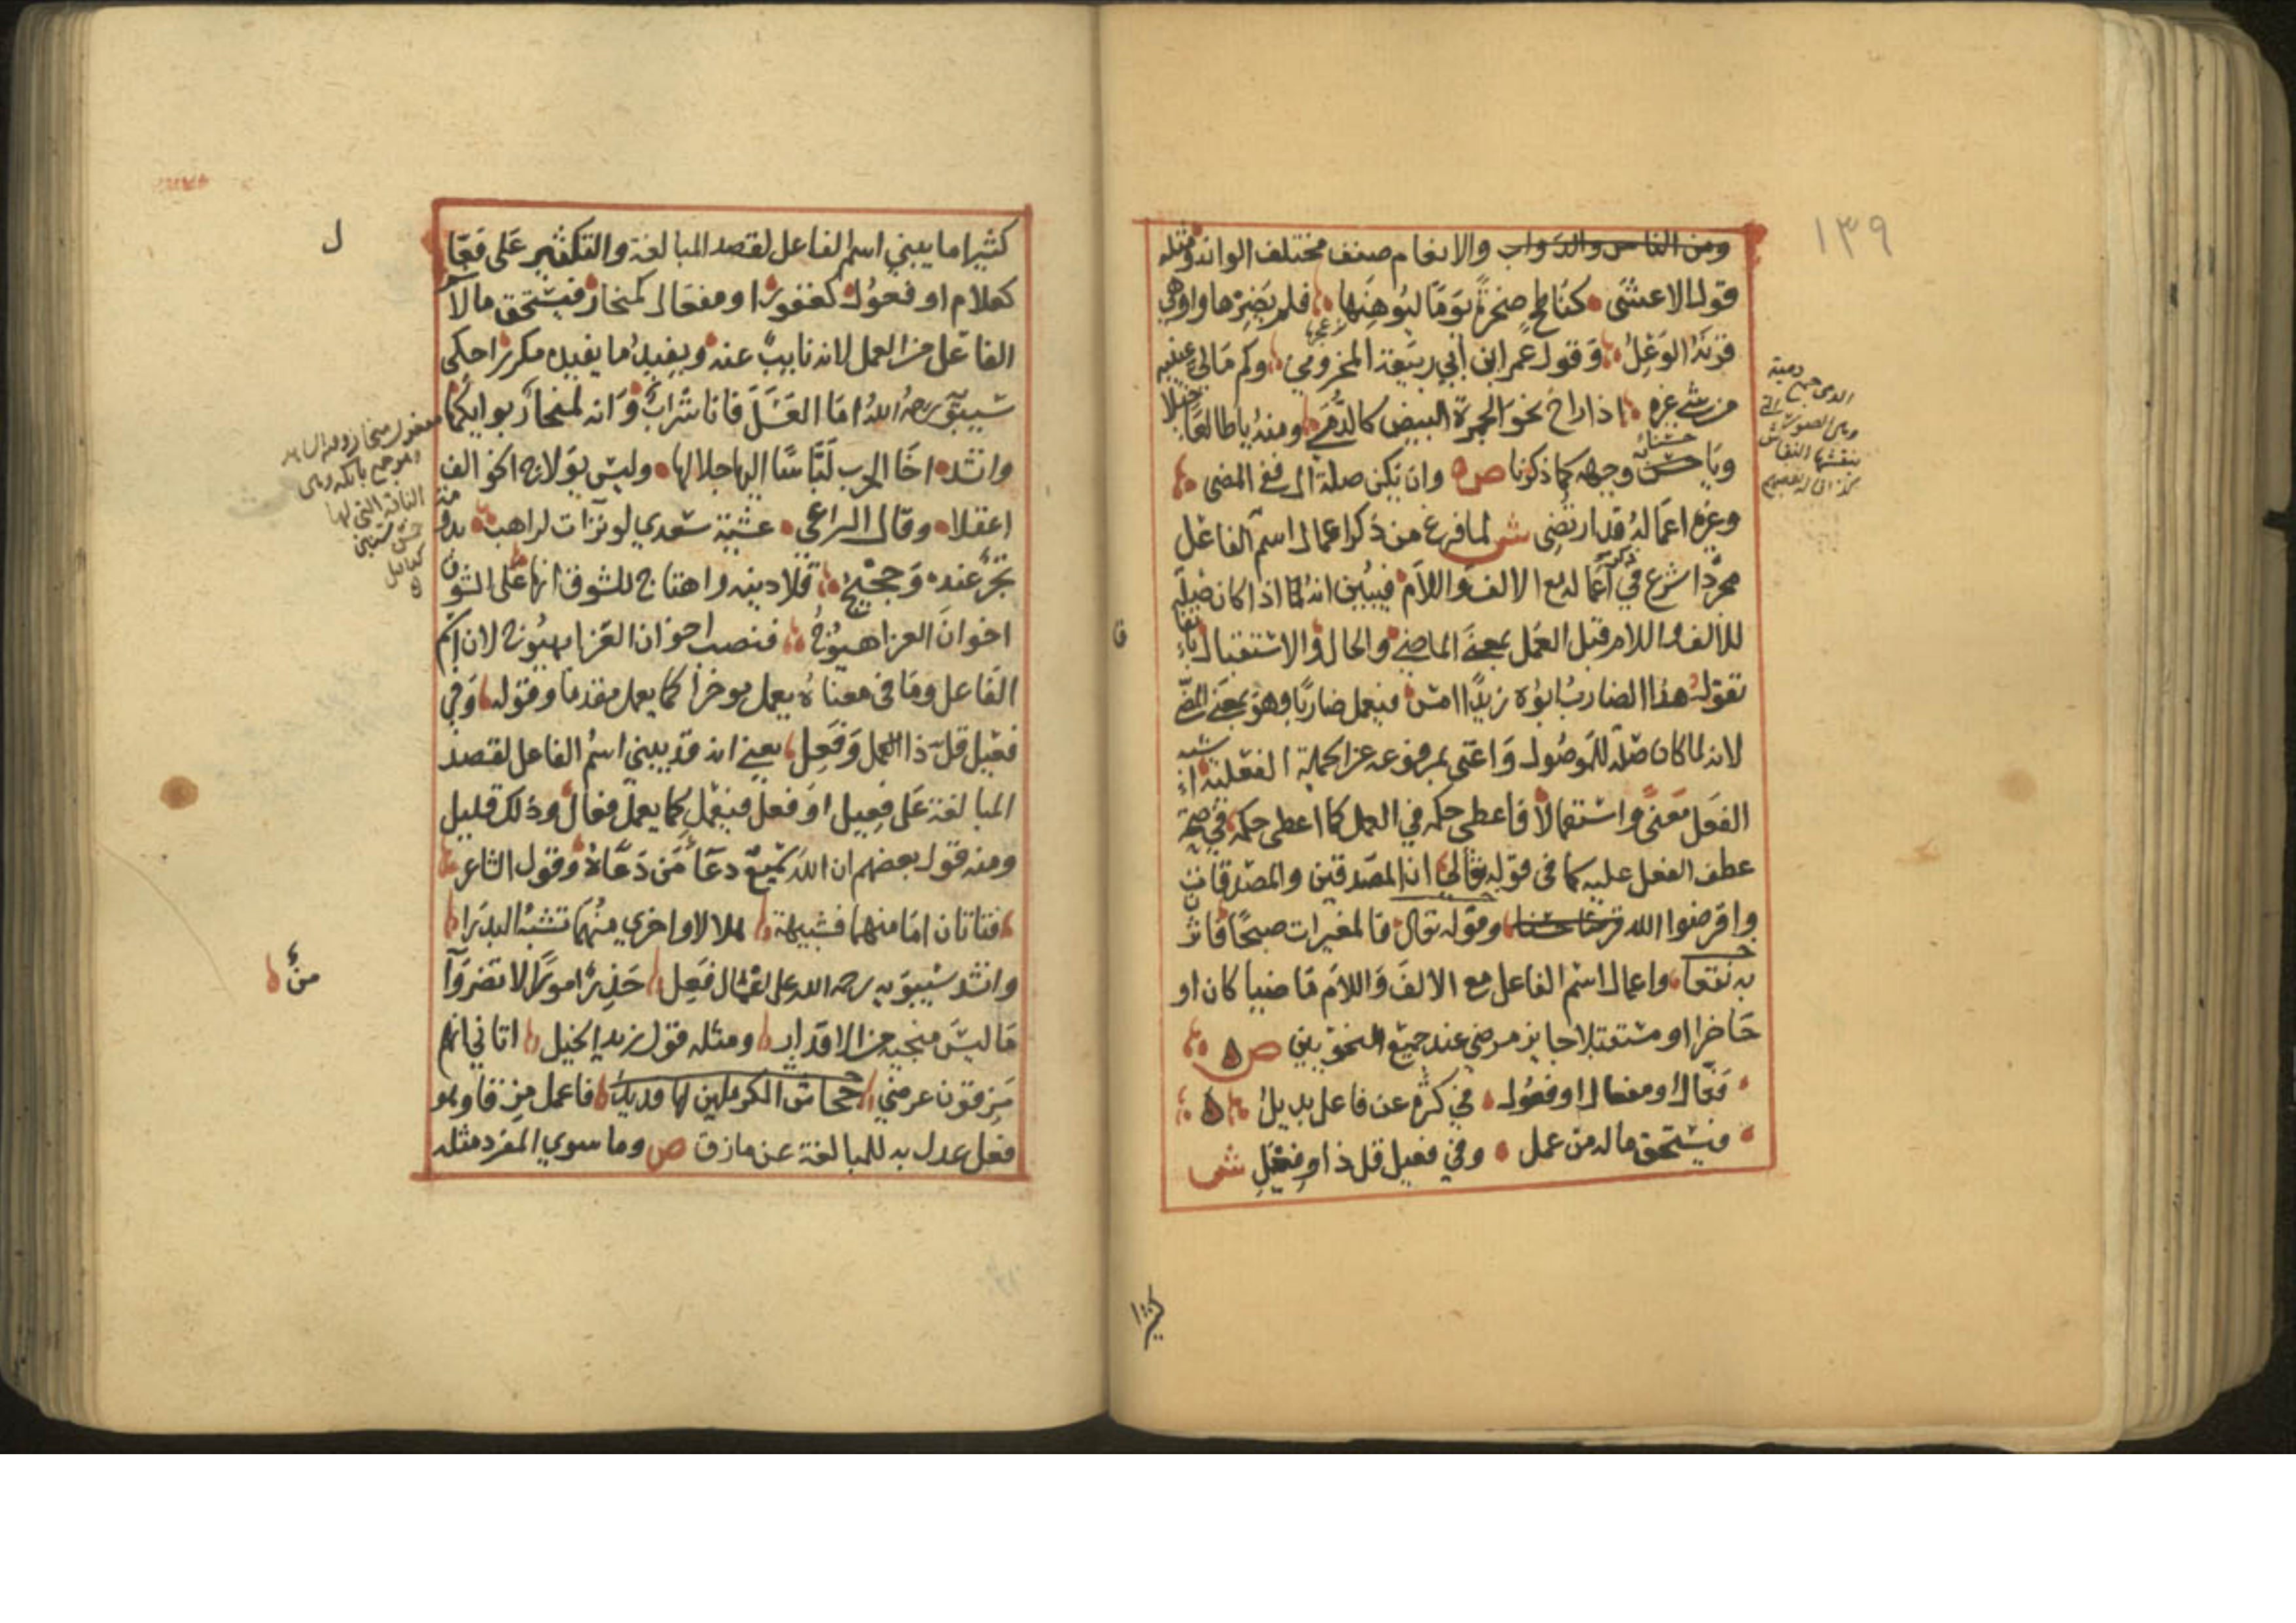 ١٣٩
ومن الناس والدواب والانعام صنف مختلف الوانه ومثله
قول الاعشى كناطح صخرة يوما ليوهنها فلم يضرها واوهى
قرنه الوعل وقول عمر ابن أبي ربيعة المخزومي وكم مالئ عينيه
من شيء غيره اذا راح نحو الجمرة البيض كالدمى ومنه ياطالعا جبلا
ويا حسنا وجهه كما ذكرنا ص وان يكن صلة ال ففي المضى
وغيره اعماله قد ارتضى ش لما فرغ من ذكر اعمال اسم الفاعل
مجردا شرع في ذكر اعماله مع الالف واللام فيبين انه لما اذا كان صلة
للالف واللام قبل العمل بمعنى الماضي والحال والاستقبال باتفاق
تقول هذا الضارب ابوه زيدا امس فيعمل ضاربا وهو بمعنى المضى
لانه لما كان صلة للموصول واغنى بمرفوعه عن الجملة الفعلية اشبه
الفعل معنى واستعمالا فاعطى حكمه في العمل كما اعطى حكمه في صحة
عطف الفعل عليه كما في قوله تعالى ان المصدقين والمصدقات
واقرضوا الله قرضا حسنا وقوله تعالى فالمغيرات صبحا فاثرن
به نقعا واعمال اسم الفاعل مع الالف واللام ماضيا كان او
حاضرا او مستقبلا جايز مرضي عند جميع النحويين ص
فعال او مفعال او فعول في كثرة عن فاعل بديل
فيستحق ماله من عمل وفي فعيل قل ذا وفعل ش
كثيرا
كثيرا ما يبني اسم الفاعل لقصد المبالغة والتكثير على فعّا
ل
كعلام او فعول كغفور او مفعال كمنحار فيستحق مالا
الفاعل من العمل لانه نايب عنه ويفيد ما يفيده مكررا حكى
سيبويه رحمه الله اما العسل فانا شراب وانه لمنحار بوايكها
وانشد اخا الحرب لباسا اليها جلالها وليس بولاج الخوالف
اعقلا وقال الراعي عشية سعدي لو تراءت لراهب بدومة
تجر عنده وحجيج قلا دينه واهتاج للشوق انها على الشوق
اخوان العزا هيوج فنصب اخوان العزا بهيوج لان اسم
الفاعل وما في معناه يعمل موخرا كما يعمل مقدما وقوله وفي
فعيل قل ذا العمل وفعل يعني انه قد يبنى اسم الفاعل لقصد
المبالغة على فعيل او فعل فيعمل كما يعمل فعال وذلك قليل
ومنه قول بعضهم ان الله سميع دعا من دعاه وقول الشاعر
فتاتان اما منهما فشبيهة هلالا واخرى منهما تشبه البدرا
وانشد سيبويه رحمه الله على اعمال فعل حذر امورا لا تضر وآ
منٌ
ما ليس منجيه من الاقدار ومثله قول زيد الخيل اتاني انهم
مزقون عرضي جحاش الكرملين لها فديد فاعمل مزقا وهو
فعل عدل به للمبالغة عن مازق ص وما سوى المفرد مثله